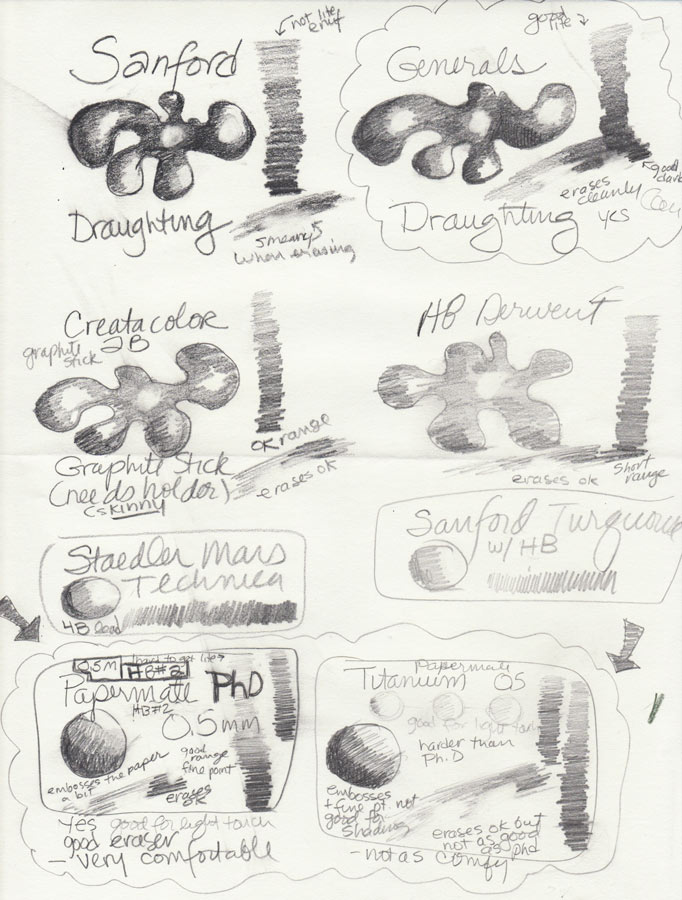 Sanford
not lite
enuf
Draughting
smeary
when erasing
Generals
good
lite
Draughting
erases
cleanly
yes
good
dark
Creatacolor
2B
graphite
stick
ok range
Graphite Stick
(needs holder)
(skinny
erases ok
HB Derwent
erases ok
short
range
Staedler Mars
Technica
4B lead
Sanford Turquoise
w/ HB
0.5m HB#2
hard to get lite
Papermate PhD
HB#2
0.5mm
good
range
fine point
embosses the paper
a bit
erases
ok
yes good for light touch
good eraser
- very comfortable
Papermate
Titanium 05
good for light touch
harder than
Ph.D
embosses
+ fine pt. not
good for
shading
erases ok but
not as good
as phd
- not as comfy